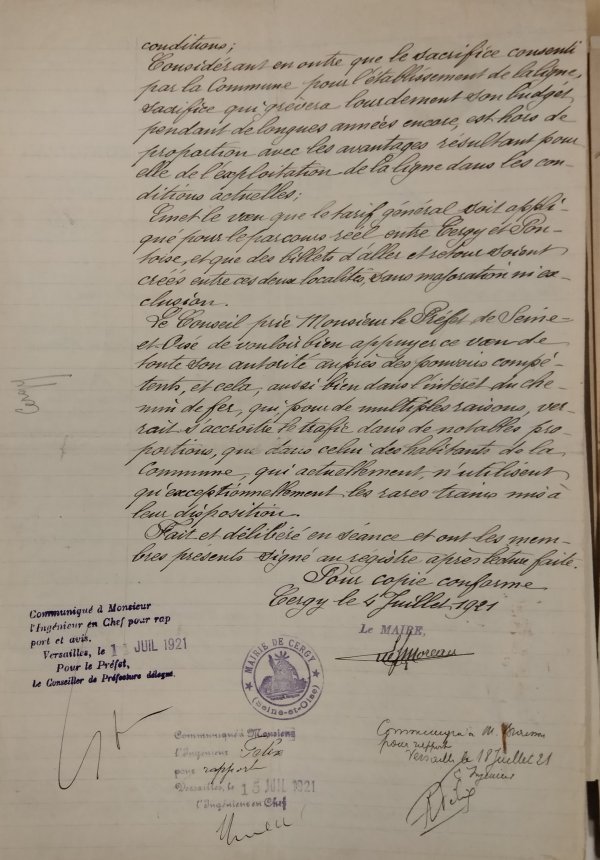 conditions;
Considérant en outre que le sacrifice consenti
par la Commune pour l'établissement de la ligne,
sacrifice qui grèvera lourdement son budget
pendant de longues années encore, est hors de
proportion avec les avantages résultant pour
elle de l'exploitation de la ligne dans les con-
ditions actuelles;
Emet le vœu que le tarif général soit appli-
qué pour le parcours réel entre Cergy et Pon-
toise, et que des billets d'aller et retour soient
créés entre ces deux localités, sans majoration ni ex-
clusion.
Le Conseil prie Monsieur le Préfet de Seine-
et-Oise de vouloir bien appuyer ce vœu de
toute son autorité auprès des pouvoirs compé-
tents, et cela, aussi bien dans l'intérêt du che-
min de fer, qui, pour de multiples raisons, ver-
rait s'accroître le trafic dans de notables pro-
portions, que dans celui des habitants de la
Commune, qui actuellement, n'utilisent
qu'exceptionnellement les rares trains mis à
leur disposition.
Fait et délibéré en séance et ont les mem-
bres présents signé au registre après lecture faite.
Pour copie conforme
Cergy le 4 Juillet 1921
Le MAIRE,
Moreau
MAIRIE DE CERGY
(Seine-et-Oise)
Cergy
Communiqué à Monsieur
l'Ingénieur en Chef pour rap
port et avis.
Versailles, le 11 JUIL 1921
Pour le Préfet,
Le Conseiller de Préfecture délégué.
Communiqué à Monsieur
l'Ingénieur
pour rapport
Versailles, le 15 JUIL 1921
l'Ingénieur en Chef
Communiqué à M.
pour rapport
Versailles le 18 Juillet 21
L'Ingénieur